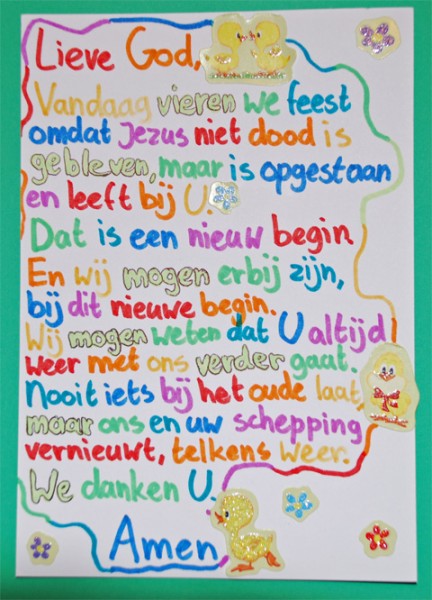 Lieve God,
Vandaag vieren we feest
omdat Jezus niet dood is
gebleven, maar is opgestaan
en leeft bij U.
Dat is een nieuw begin.
En wij mogen erbij zijn,
bij dit nieuwe begin.
Wij mogen weten dat U altijd
weer met ons verder gaat.
Nooit iets bij het oude laat,
maar ons en uw schepping
vernieuwt, telkens weer.
We danken U.
Amen